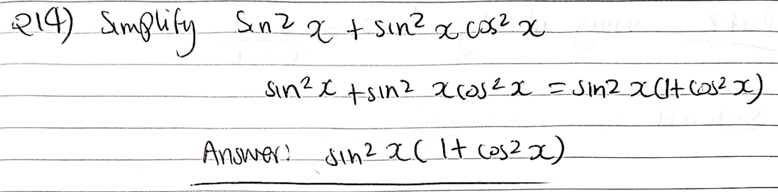 Q14) Simplify sin² x + sin² x cos² x
sin² x + sin² x cos² x = sin² x (1 + cos² x)
Answer: sin² x ( 1 + cos² x)